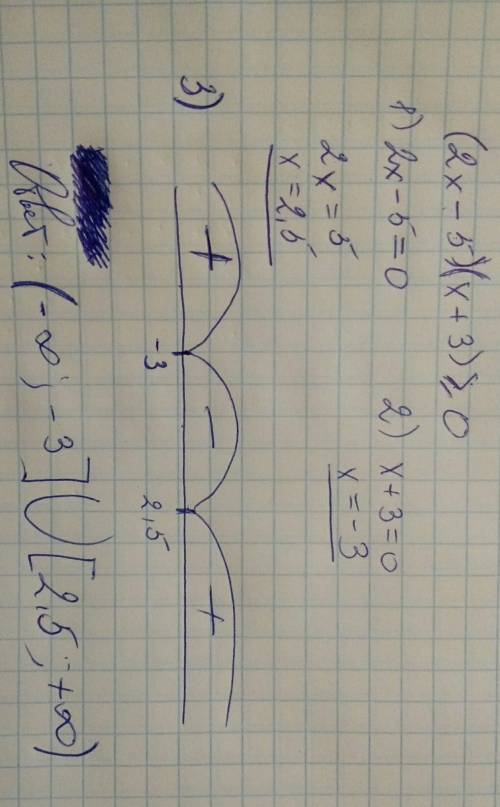 (2x - 5)(x + 3) ≥ 0
1) 2x - 5 = 0
2x = 5
x = 2,5
2) x + 3 = 0
x = -3
3)
+ - +
-3 2,5
Ответ: (-∞; -3] ∪ [2,5; +∞)